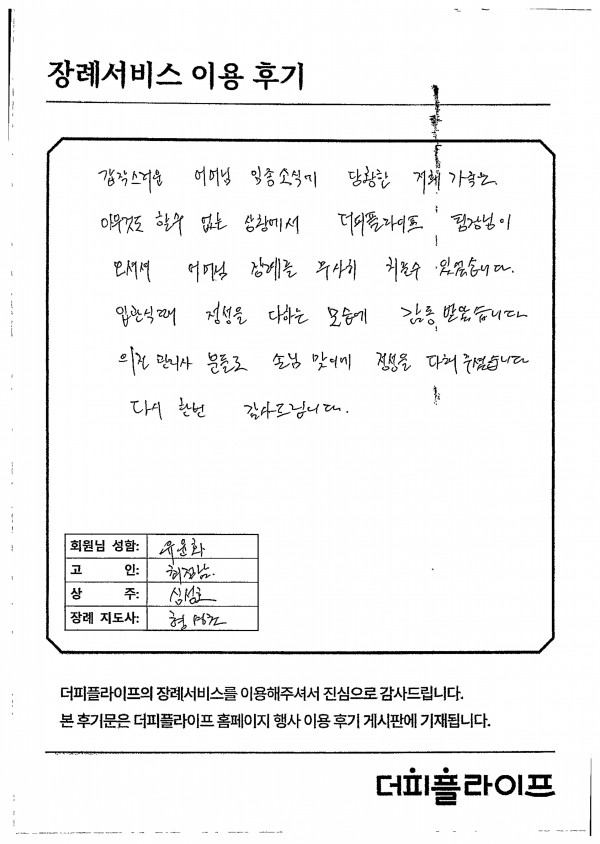 장례서비스 이용 후기
갑작스러운 어머님 임종소식에 당황한 저희 가족은
아무것도 할수 없는 상황에서 더피플라이프 팀장님이
오셔서 어머님 장례를 무사히 치를수 있었습니다.
입관식때 정성을 다하는 모습에 감동 받았습니다
의전 관리사 분들도 손님 맞이에 정성을 다해 주셨습니다
다시 한번 감사드립니다.
회원님 성함: 유윤화
고 인:
상 주: 심성호
장례 지도사:
더피플라이프의 장례서비스를 이용해주셔서 진심으로 감사드립니다.
본 후기문은 더피플라이프 홈페이지 행사 이용 후기 게시판에 기재됩니다.
더피플라이프